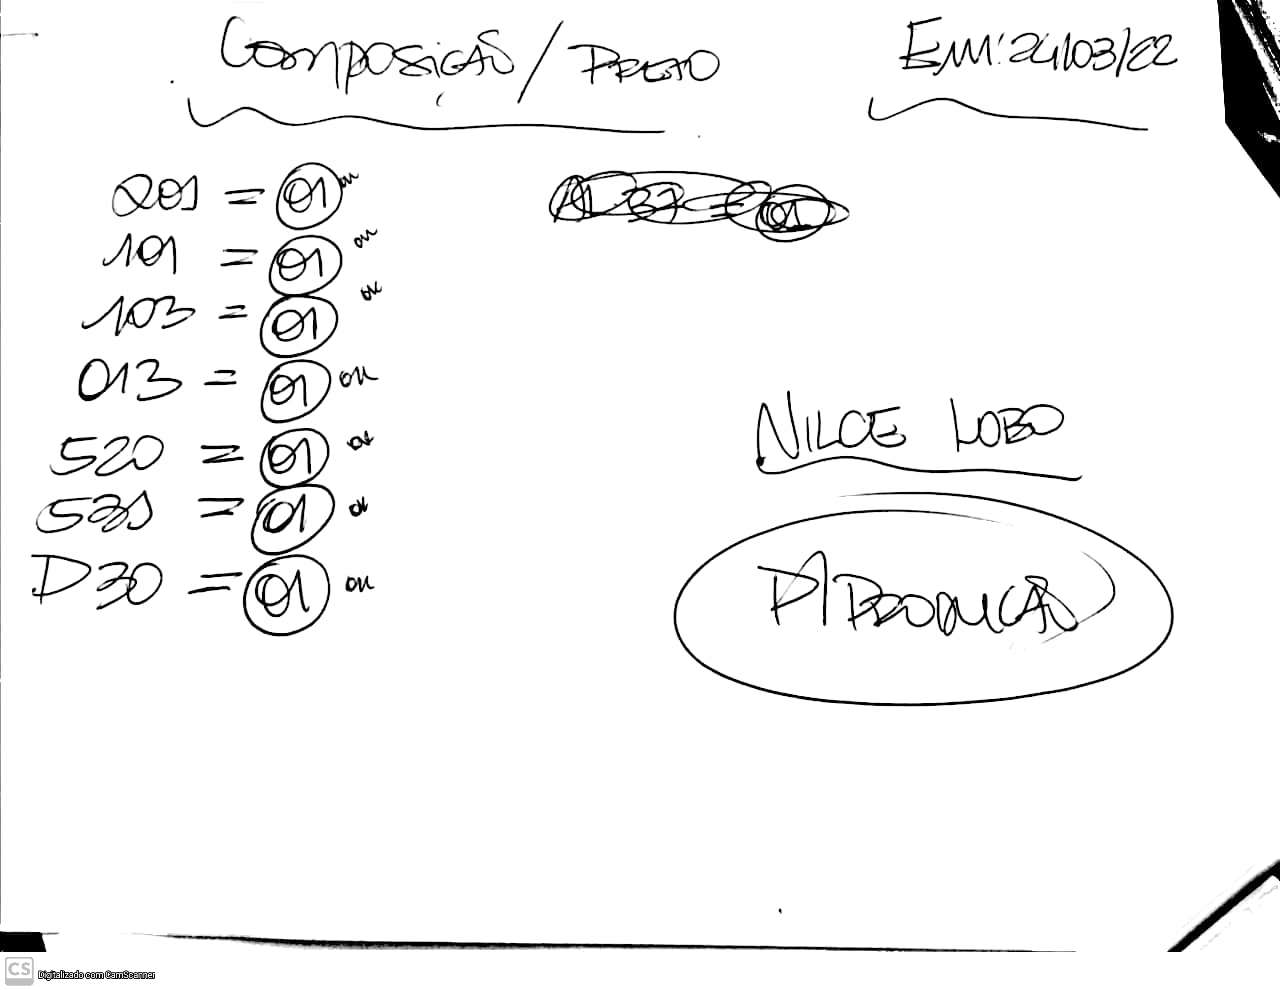 COMPOSIÇÃO / PRETO
EM: 24/03/22
201 = 01 un
101 = 01 un
103 = 01 un
013 = 01 un
520 = 01 un
521 = 01 un
D30 = 01 un
NILCE LOBO
P/ PRODUÇÃO
CS Digitalizado com CamScanner